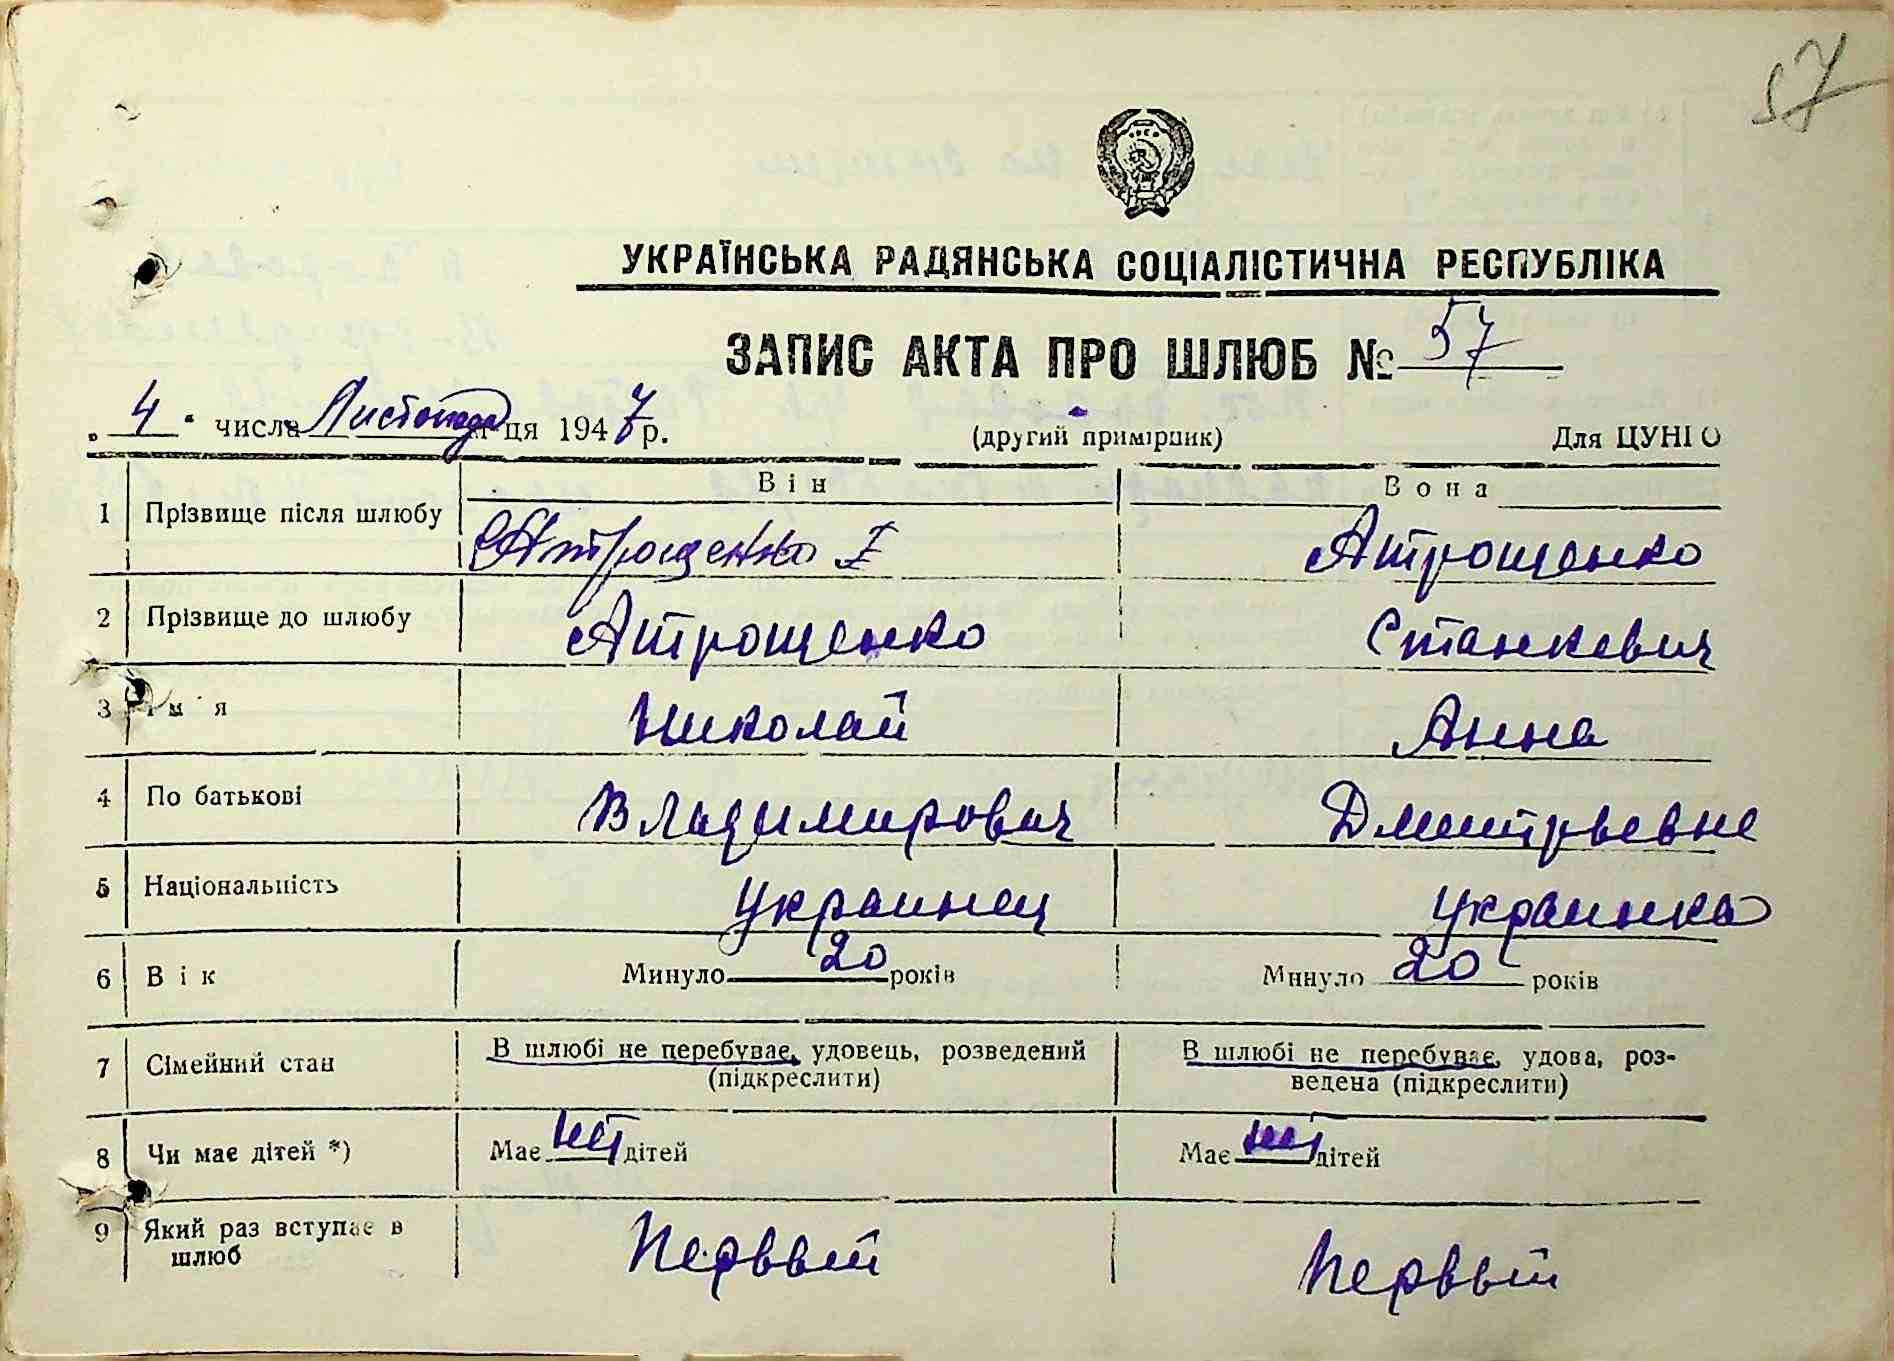 57
УКРАЇНСЬКА РАДЯНСЬКА СОЦІАЛІСТИЧНА РЕСПУБЛІКА
ЗАПИС АКТА ПРО ШЛЮБ № 57
„ 4 " числа Листопада ця 1947 р. (другий примірник) Для ЦУНГО
Він Вона
1 Прізвище після шлюбу Атрощенко Атрощенко
2 Прізвище до шлюбу Атрощенко Станкевич
3 Ім'я Николай Анна
4 По батькові Владимирович Дмитрьевна
5 Національність Украинец Украинка
6 Вік Минуло 20 років Минуло 20 років
7 Сімейний стан В шлюбі не перебуває, удовець, розведений (підкреслити) В шлюбі не перебуває, удова, роз-
ведена (підкреслити)
8 Чи має дітей *) Має нет дітей Має нет дітей
9 Який раз вступає в шлюб Первый Первый